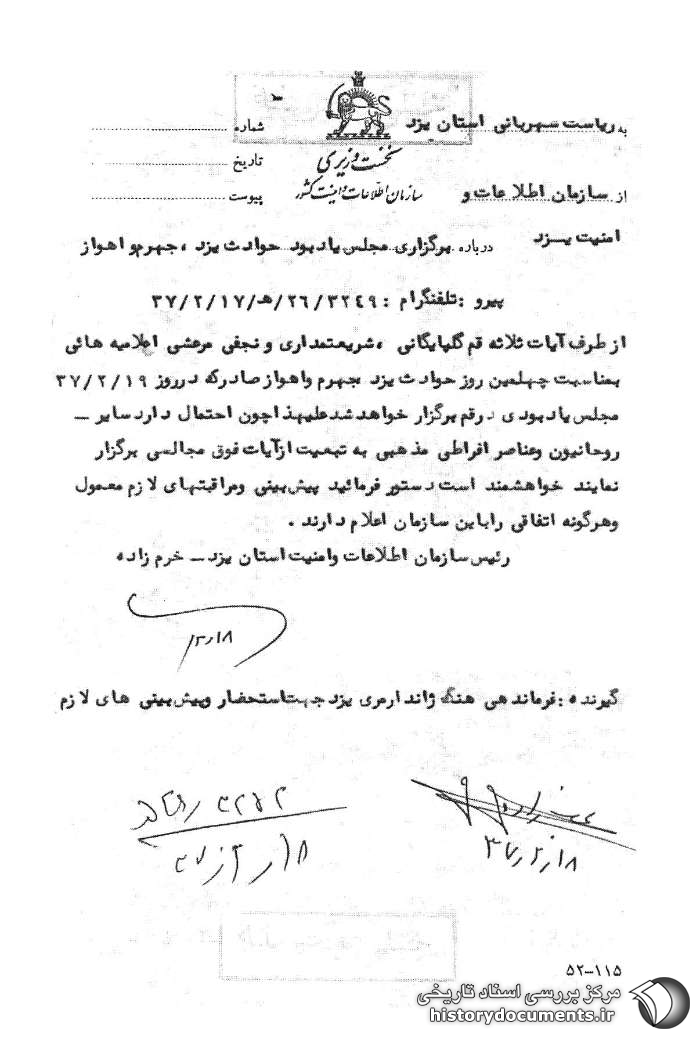 به ریاست شهربانی استان یزد
شماره
نخست وزیری
تاریخ
سازمان اطلاعات و امنیت کشور
از سازمان اطلاعات و
پیوست
امنیت یزد
درباره برگزاری مجلس یادبود حوادث یزد ، جهرم و اهواز
پیرو : تلفنگرام : ۳۲۴۹/۲۶/هـ/۳۷/۲/۱۷
از طرف آیات ثلاثه قم گلپایگانی ، شریعتمداری و نجفی مرعشی اعلامیه هائی
بمناسبت چهلمین روز حوادث یزد جهرم واهواز صادر که درروز ۳۷/۲/۱۹
مجلس یادبودی در قم برگزار خواهد شد علیهذا چون احتمال دارد سایر ــ
روحانیون وعناصر افراطی مذهبی به تبعیت از آیات فوق مجالسی برگزار
نمایند خواهشمند است دستور فرمائید پیش بینی ومراقبتهای لازم معمول
وهرگونه اتفاقی را باین سازمان اعلام دارند .
رئیس سازمان اطلاعات وامنیت استان یزد ــ خرم زاده
۲/۱۸
گیرنده : فرماندهی هنگ ژاندارمری یزد جهت استحضار وپیش بینی های لازم
۳۷/۲/۱۸
۵۲-۱۱۵
مرکز بررسی اسناد تاریخی
historydocuments.ir